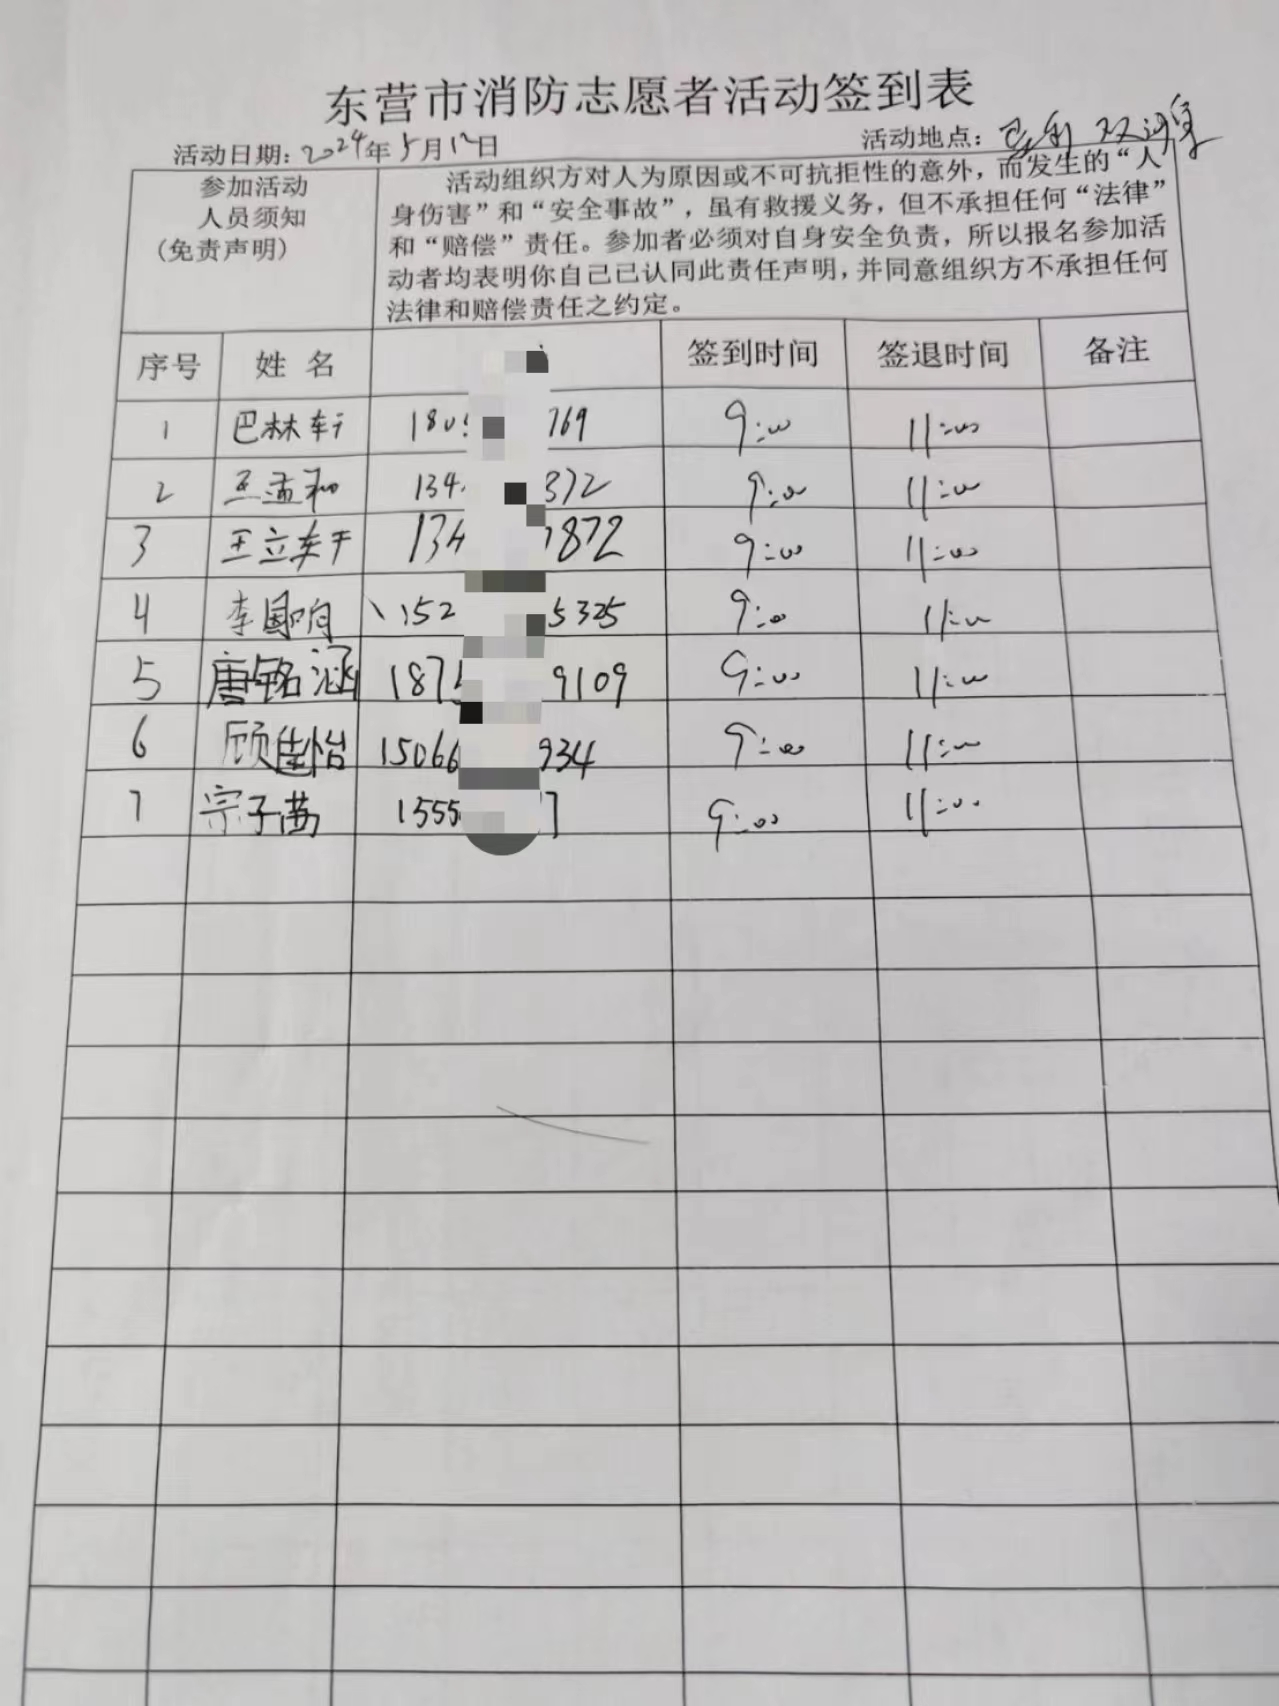 东营市消防志愿者活动签到表
活动日期：2024年5月12日 活动地点：
参加活动
人员须知
(免责声明)
活动组织方对人为原因或不可抗拒性的意外，而发生的“人
身伤害”和“安全事故”，虽有救援义务，但不承担任何“法律”
和“赔偿”责任。参加者必须对自身安全负责，所以报名参加活
动者均表明你自己已认同此责任声明，并同意组织方不承担任何
法律和赔偿责任之约定。
序号 姓 名 签到时间 签退时间 备注
1 巴林轩 180 769 9:00 11:00
2 王孟和 134 372 9:00 11:00
3 王立轩 134 1872 9:00 11:00
4 李国 152 5325 9:00 11:00
5 唐铭涵 187 9109 9:00 11:00
6 顾佳怡 15066 934 9:00 11:00
7 宗子茜 1555 9:00 11:00